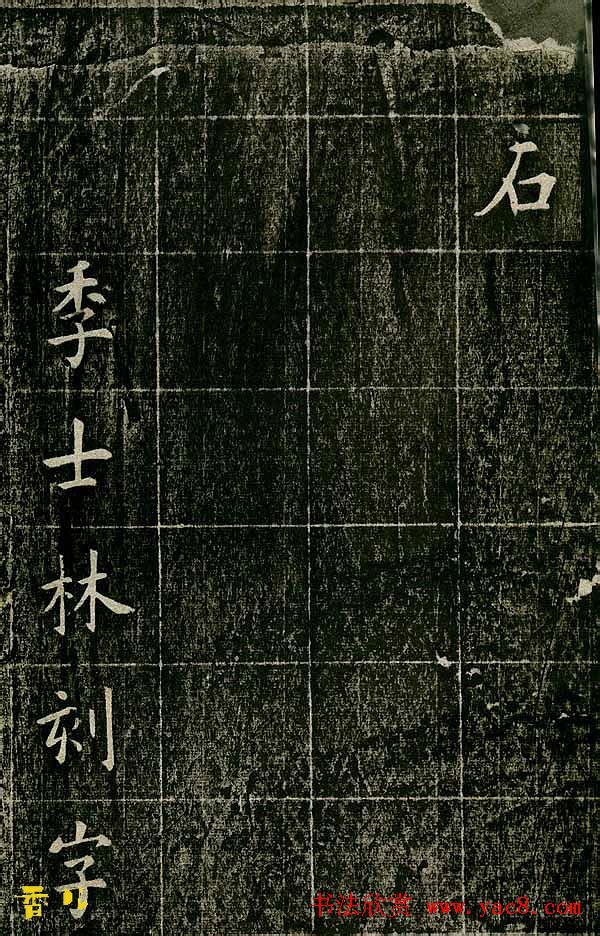 石
季士林刻字
書法欣赏 www.yac8.com